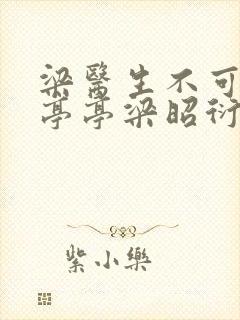 梁醫生不可
亭亭梁昭衍
紫小樂